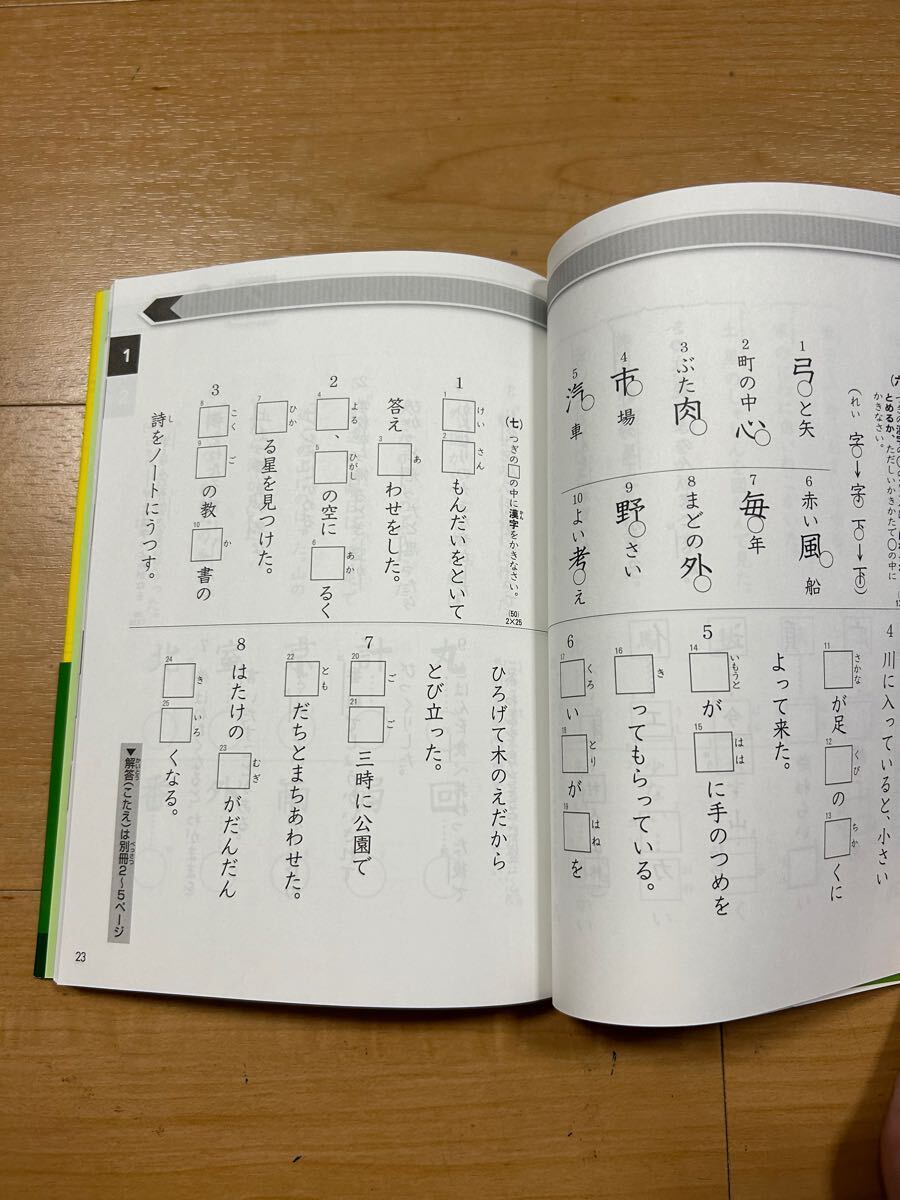 とめるか、ただしいかきかたで○の中に
かきなさい。
（れい 字→字 下→下）
1 弓と矢
2 町の中心
3 ぶた肉
4 市場
5 汽車
6 赤い風船
7 毎年
8 まどの外
9 野さい
10 よい考え
（七）つぎの□の中に漢字をかきなさい。
かん
(50)
2×25
1 1□けい 2□さん もんだいをといて
答え 3□あ わせをした。
2 4□よる、5□ひがし の空に 6□あか るく
7□ひか る星を見つけた。
3 8□こく 9□ご の教 10□か 書の
詩をノートにうつす。
し
4 川に入っていると、小さい
11□さかな が足 12□くび の 13□ちか くに
よって来た。
5 14□いもうと が 15□はは に手のつめを
16□き ってもらっている。
6 17□くろ い 18□とり が 19□はね を
ひろげて木のえだから
とび立った。
7 20□ご 21□ご 三時に公園で
22□とも だちとまちあわせた。
8 はたけの 23□むぎ がだんだん
24□き 25□いろ くなる。
▼解答(こたえ)は別冊2〜5ページ
かいとう
べっさつ
1
23